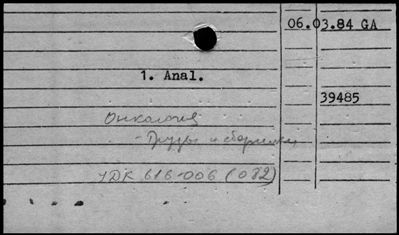 06.03.84 GA
1. Anal.
39485
Онкология
- Труды и сборники
УДК 616-006 (082)